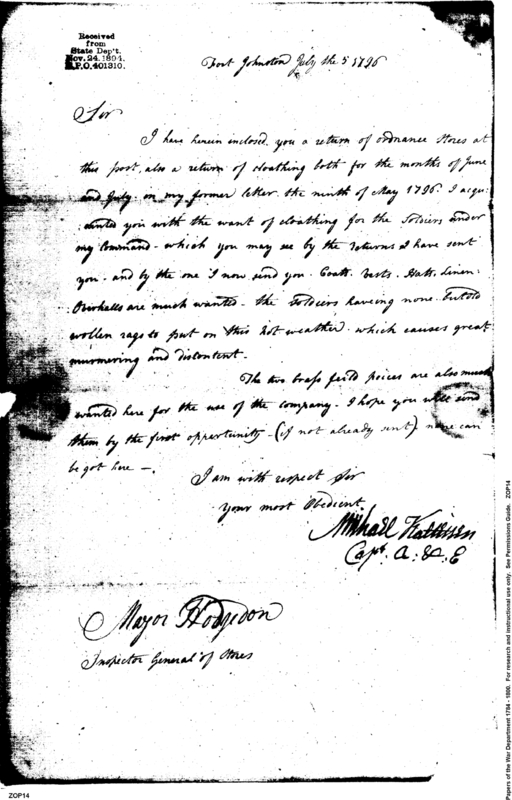 Received
from
State Dep't.
Nov. 24. 1894.
R.P.O. 401310.
Fort Johnston July the 5 1796
Sir
I have herein inclosed you a return of ordnance Stores at
this post, also a return of cloathing both for the months of June
and July. on my former letter the ninth of May 1796. I acqu-
ainted you with the want of cloathing for the Soldiers under
my Command - which you may see by the returns I have sent
you - and by the one I now send you - Coats. Vests. Hats. Linen
Overhalls are much wanted - the Soldiers haveing none. but old
wollen rags to put on this hot weather. which causes great
murmering and discontent -
The two brass feild peices are also much
wanted here for the use of the company - I hope you will send
them by the first opportunity - (if not already sent) none can
be got here -
I am with respect Sir
your most Obedient
Michael Kalteisen
Capt. A. & E
Mayor Hodgdon
Inspector General of Stores
ZOP14
Papers of the War Department 1784 - 1800. For research and instructional use only. See Permissions Guide. ZOP14